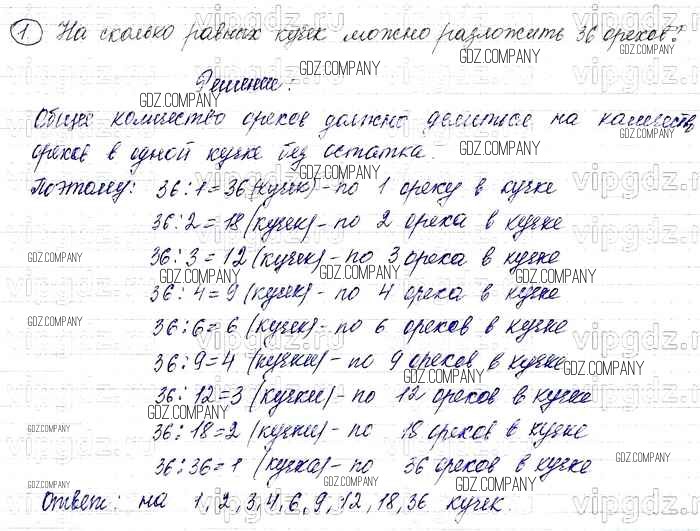 1. На сколько равных кучек можно разложить 36 орехов?
Решение:
Общее количество орехов должно делиться на количеств
орехов в одной кучке без остатка.
Поэтому: 36:1=36 (кучек) - по 1 ореху в кучке
36:2=18 (кучек) - по 2 ореха в кучке
36:3=12 (кучек) - по 3 ореха в кучке
36:4=9 (кучек) - по 4 ореха в кучке
36:6=6 (кучек) - по 6 орехов в кучке
36:9=4 (кучки) - по 9 орехов в кучке
36:12=3 (кучки) - по 12 орехов в кучке
36:18=2 (кучки) - по 18 орехов в кучке
36:36=1 (кучка) - по 36 орехов в кучке
Ответ: на 1, 2, 3, 4, 6, 9, 12, 18, 36 кучек.
GDZ.COMPANY
vipgdz.ru